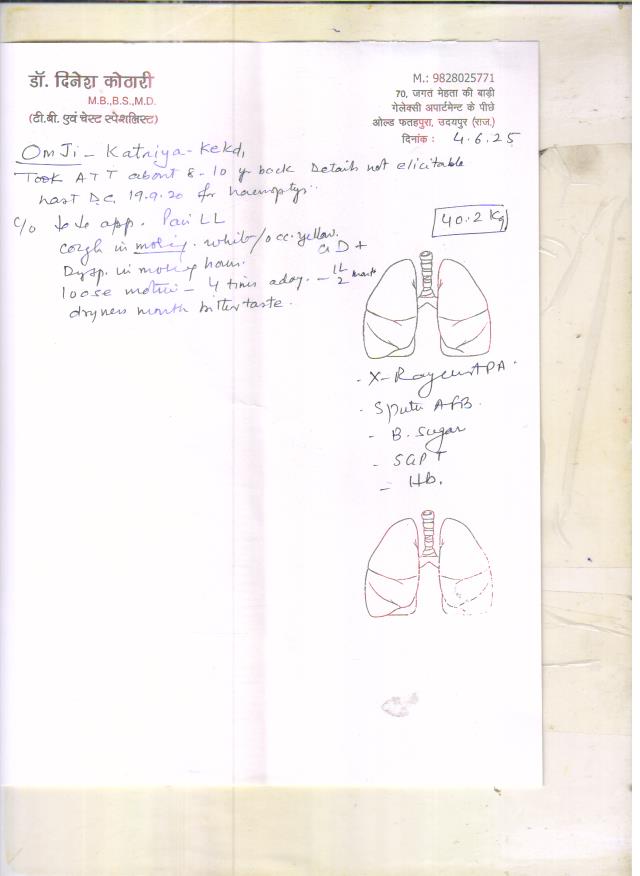 डॉ. दिनेश कोठारी
M.B.,B.S.,M.D.
(टी.बी. एवं चेस्ट स्पेशलिस्ट)
M.: 9828025771
70, जगत मेहता की बाड़ी
गेलेक्सी अपार्टमेन्ट के पीछे
ओल्ड फतहपुरा, उदयपुर (राज.)
दिनांक: 4.6.25
OmJi - Katriya - Kekd,
Took ATT about 8-10 yr back Details not elicitable
last D.C. 19.9.20 for haemoptys..
40.2 Kg
c/o app. Pain LL
cough in morning. white/occ. yellow.
D+
Dysp. in morning hour.
loose motion - 4 times a day. - 1/2
dryness mouth bitter taste.
- X-Ray chest PA.
- Sputu AFB.
- B. Sugar
- SGPT
- Hb.